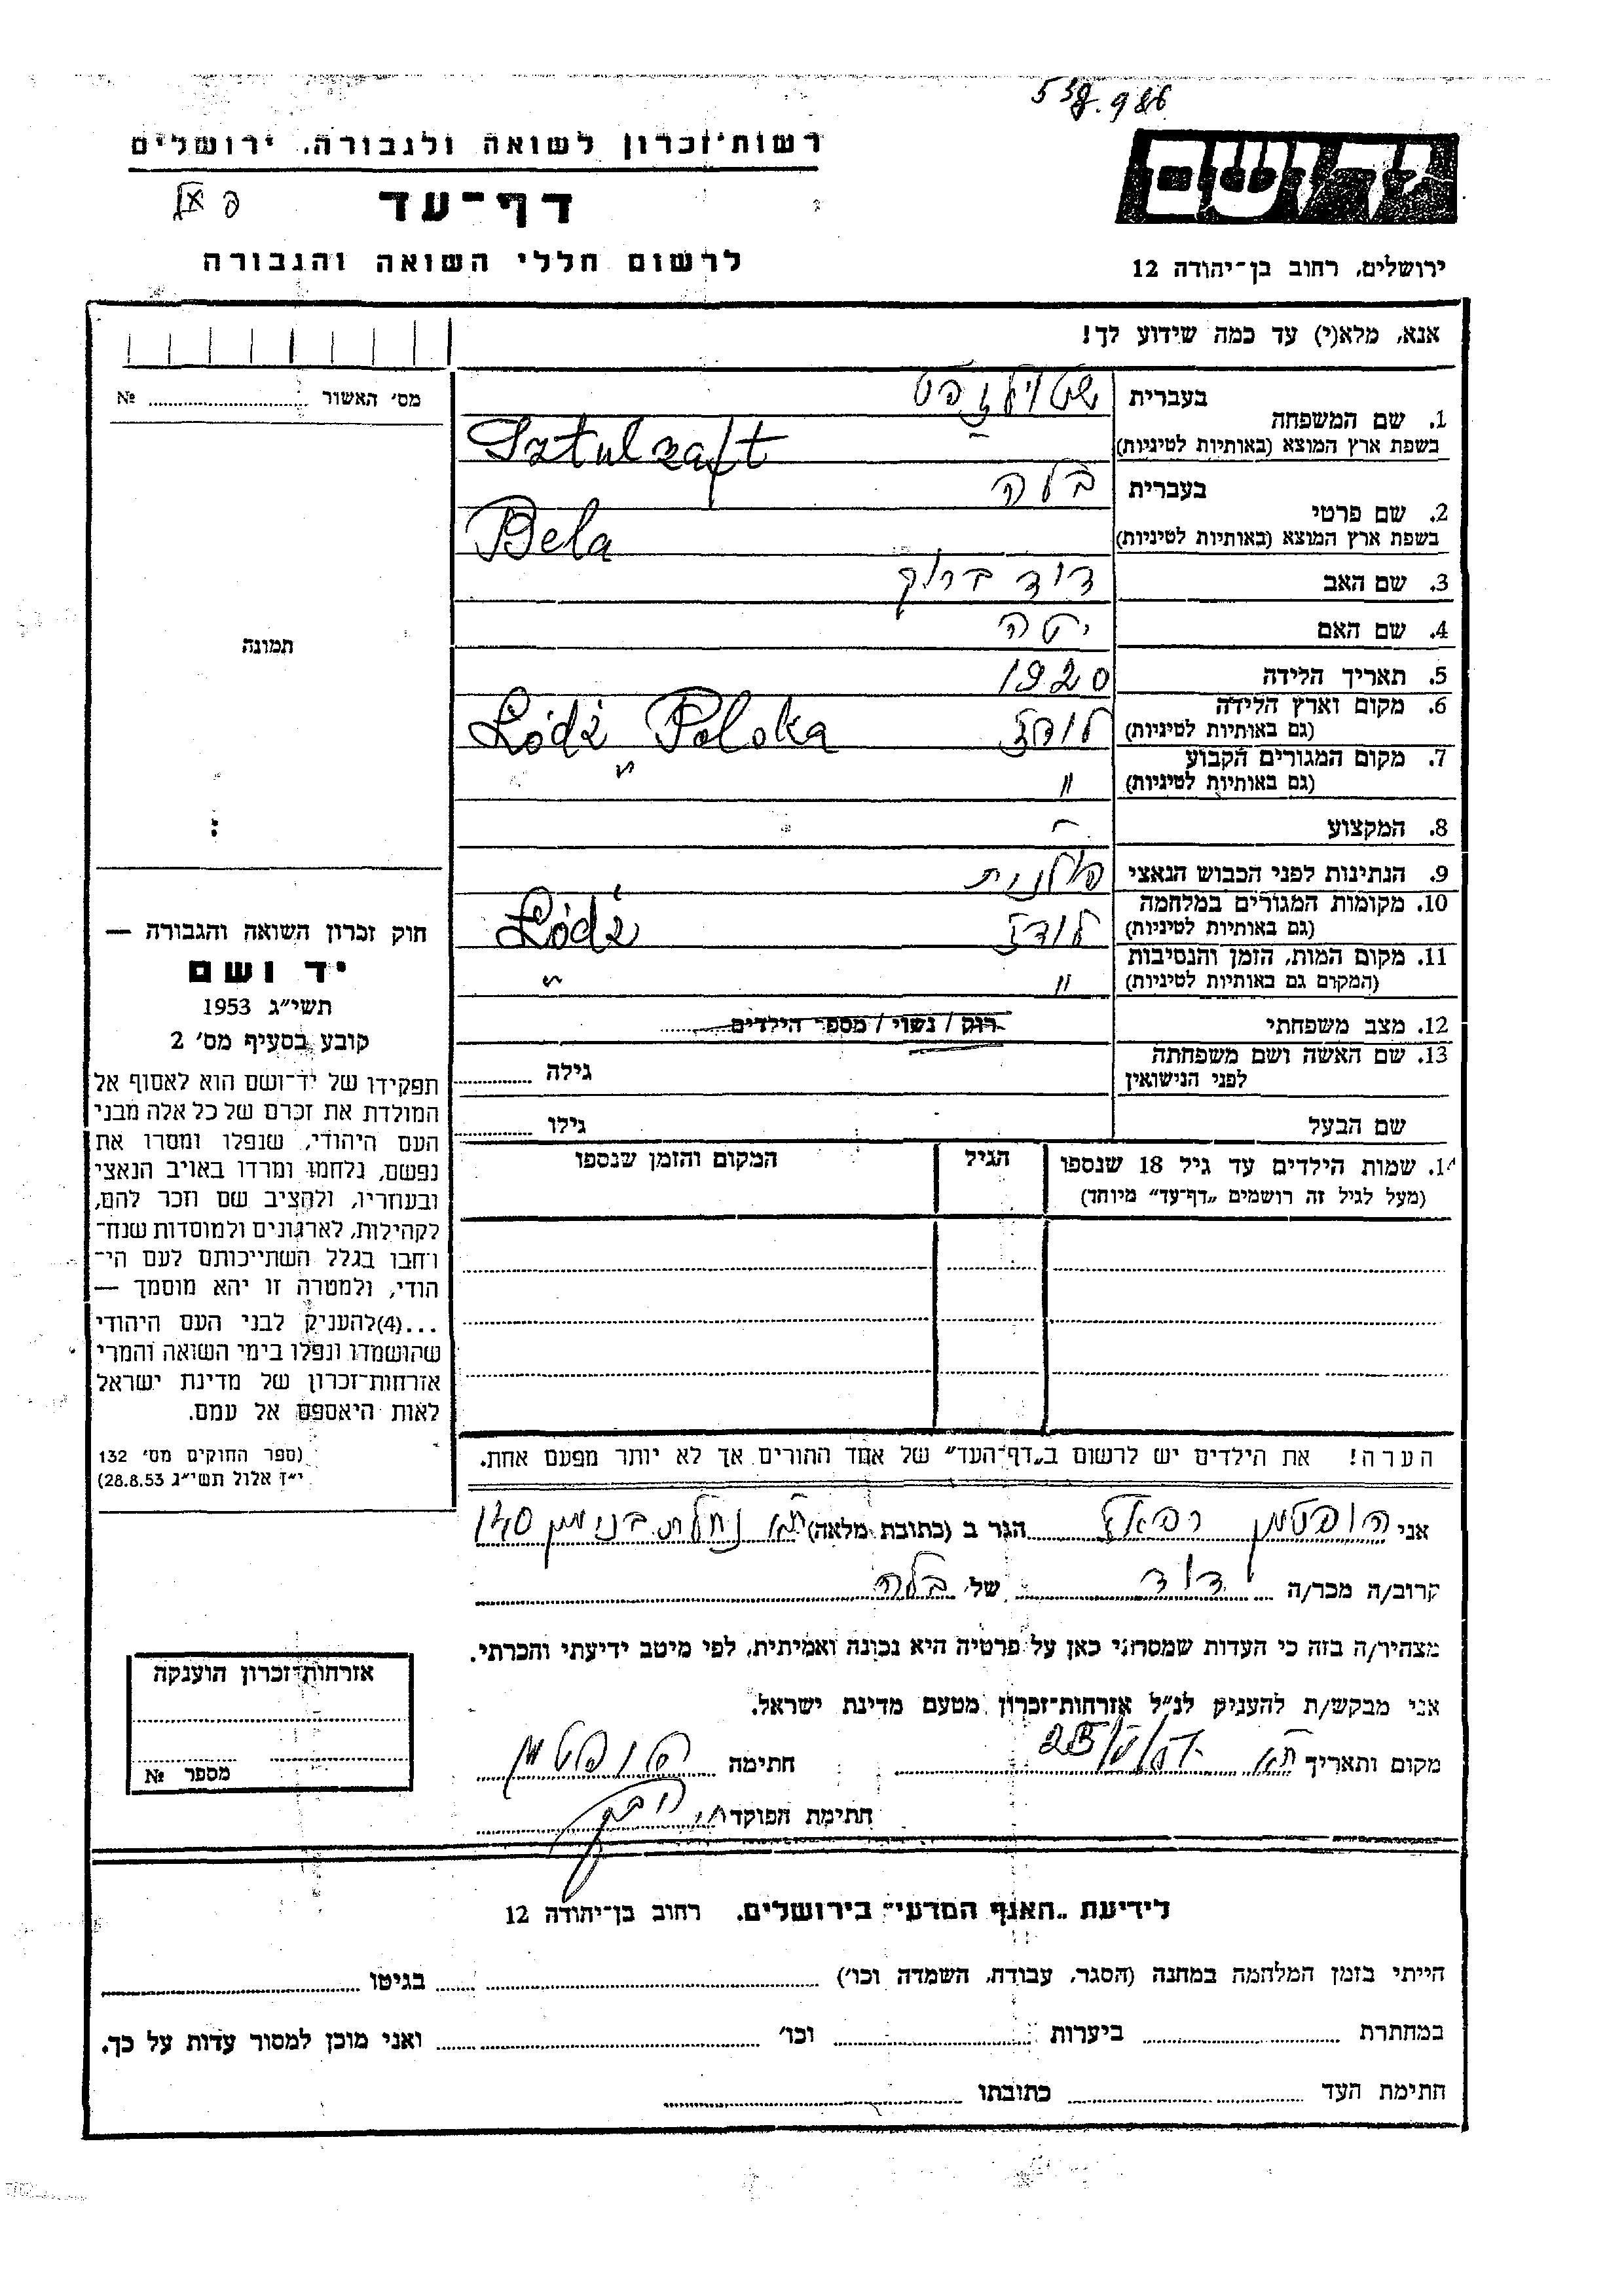 538.986
רשות־זכרון לשואה ולגבורה, ירושלים
דף־עד
לרשום חללי השואה והגבורה
יד ושם
ירושלים, רחוב בן־יהודה 12
אנא, מלא(י) עד כמה שידוע לך!
מס׳ האשור № 
1. שם המשפחה
בעברית
בשפת ארץ המוצא (באותיות לטיניות) Sztulzaft
2. שם פרטי
בעברית בלה
בשפת ארץ המוצא (באותיות לטיניות) Bela
3. שם האב דוד ברוך
4. שם האם יטה
5. תאריך הלידה 1920
6. מקום וארץ הלידה (גם באותיות לטיניות) לודז Łódź Polska
7. מקום המגורים הקבוע (גם באותיות לטיניות) " "
8. המקצוע –
9. הנתינות לפני הכבוש הנאצי פולנית
10. מקומות המגורים במלחמה (גם באותיות לטיניות) לודז Łódź
11. מקום המות, הזמן והנסיבות (המקום גם באותיות לטיניות) " "
12. מצב משפחתי רוק / נשוי / מספר הילדים
13. שם האשה ושם משפחתה לפני הנישואין גילה
שם הבעל גילו
14. שמות הילדים עד גיל 18 שנספו (מעל לגיל זה רושמים „דף־עד״ מיוחד) הגיל המקום והזמן שנספו
תמונה
חוק זכרון השואה והגבורה —
יד ושם
תשי״ג 1953
קובע בסעיף מס׳ 2
תפקידו של יד־ושם הוא לאסוף אל
המולדת את זכרם של כל אלה מבני
העם היהודי, שנפלו ומסרו את
נפשם, נלחמו ומרדו באויב הנאצי
ובעוזריו, ולהציב שם וזכר להם,
לקהילות, לארגונים ולמוסדות שנח־
רבו בגלל השתייכותם לעם הי־
הודי, ולמטרה זו יהא מוסמך —
...(4) להעניק לבני העם היהודי
שהושמדו ונפלו בימי השואה והמרי
אזרחות־זכרון של מדינת ישראל
לאות היאספם אל עמם.
(ספר החוקים מס׳ 132
י״ז אלול תשי״ג 28.8.53)
הערה! את הילדים יש לרשום ב„דף־העד״ של אחד ההורים אך לא יותר מפעם אחת.
אני הופטמן רפאל הגר ב (כתובת מלאה) ת״א נחלת בנימין 140
קרוב/ה מכר/ה דוד של בלה
מצהיר/ה בזה כי העדות שמסרתי כאן על פרטיה היא נכונה ואמיתית, לפי מיטב ידיעתי והכרתי.
אני מבקש/ת להעניק לנ״ל אזרחות־זכרון מטעם מדינת ישראל.
מקום ותאריך ת״א חתימה הופטמן
חתימת הפוקד
אזרחות־זכרון הוענקה
מספר №
לידיעת „האגף המדעי״ בירושלים, רחוב בן־יהודה 12
הייתי בזמן המלחמה במחנה (הסגר, עבודה, השמדה וכו׳) בגיטו
במחתרת ביערות וכו׳ ואני מוכן למסור עדות על כך.
חתימת העד כתובתו